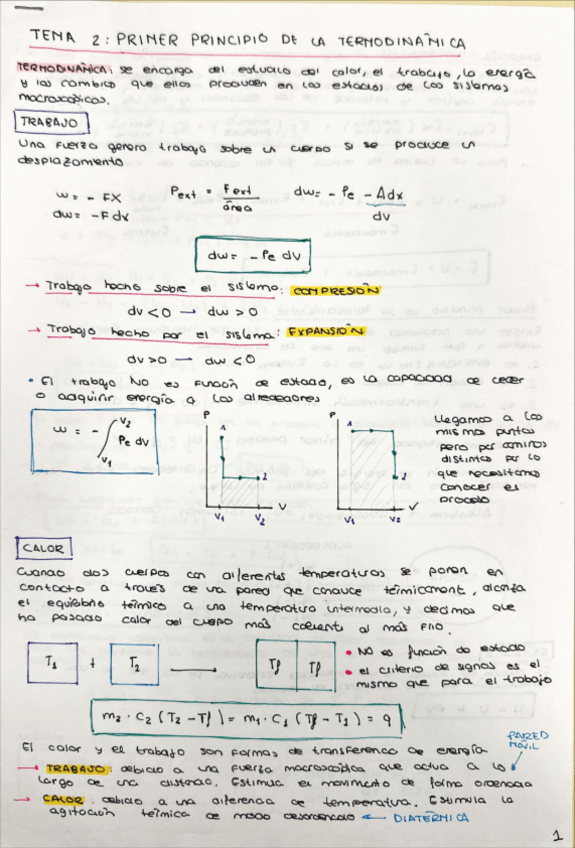 TEMA 2: PRIMER PRINCIPIO DE LA TERMODINÁMICA
TERMODINÁMICA: se encarga del estudio del calor, el trabajo, la energía
y los cambios que ellos producen en los estados de los sistemas
macroscópicos.
TRABAJO
Una fuerza genera trabajo sobre un cuerpo si se produce un
desplazamiento
w = - FX Pext = Fext / área dw = - Pe - Adx
dw = -F dx dv
dw = - Pe dV
→ Trabajo hecho sobre el sistema: COMPRESIÓN
dv < 0 → dw > 0
→ Trabajo hecho por el sistema: EXPANSIÓN
dv > 0 → dw < 0
• El trabajo NO es función de estado, es la capacidad de ceder
o adquirir energía a los alrededores
w = - ∫ V2 V1 Pe dV
P 1 2 V1 V2 V
P 1 2 V1 V2 V
Llegamos a los
mismos puntos
pero por caminos
distintos por lo
que necesitamos
conocer el
proceso
CALOR
Cuando dos cuerpos con diferentes temperaturas se ponen en
contacto a través de una pared que conduce térmicamente, alcanza
el equilibrio térmico a una temperatura intermedia, y decimos que
ha pasado calor del cuerpo más caliente al más frío.
T1 + T2 → Tf Tf
• NO es función de estado
• el criterio de signos es el
mismo que para el trabajo
m2 · C2 (T2 - Tf) = m1 · C1 (Tf - T1) = q
El calor y el trabajo son formas de transferencia de energía
PARED
MÓVIL
→ TRABAJO: debido a una fuerza macroscópica que actúa a lo
largo de una distancia. Estimula el movimiento de forma ordenada
→ CALOR: debido a una diferencia de temperatura. Estimula la
agitación térmica de modo desordenado ← DIATÉRMICA
1